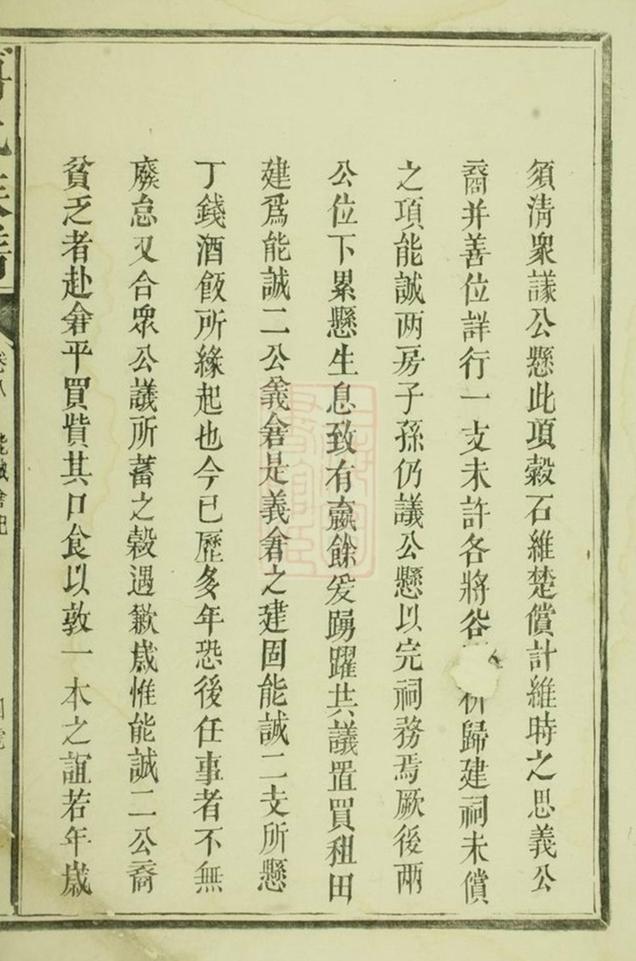 須淸衆議公懸此項穀石維楚償計維時之思義公
裔并善位詳行一支未許各將谷 析歸建祠未償
之項能誠两房子孫仍議公懸以完祠務焉厥後兩
公位下累懸生息致有贏餘爰踴躍共議置買租田
建爲能誠二公義會是義會之建固能誠二支所懸
丁錢酒飯所緣起也今已歷多年恐後任事者不無
廢怠又合眾公議所蓄之穀遇歉歲惟能誠二公裔
貧乏者赴會平買貲其口食以敦一本之誼若年歲
卷八 能誠會記